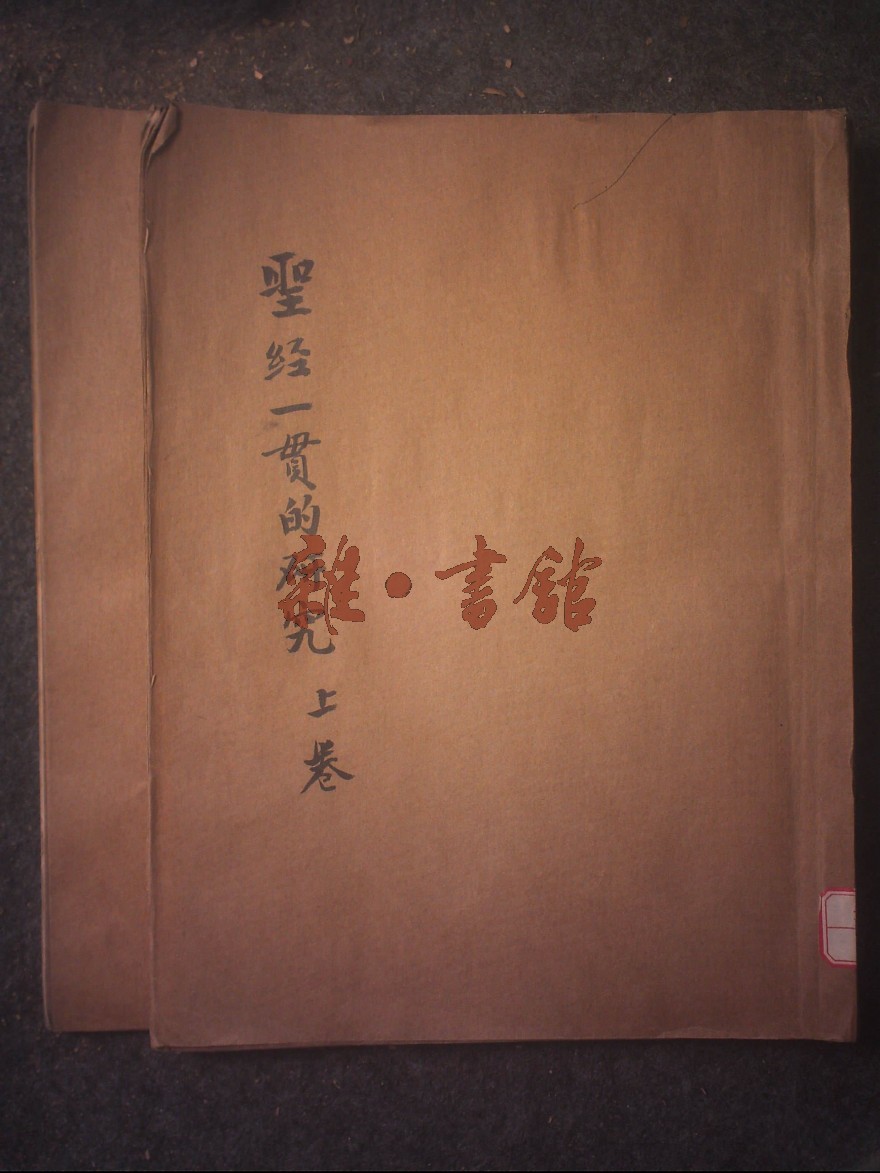 聖经一贯的研究 上卷
雜·書館